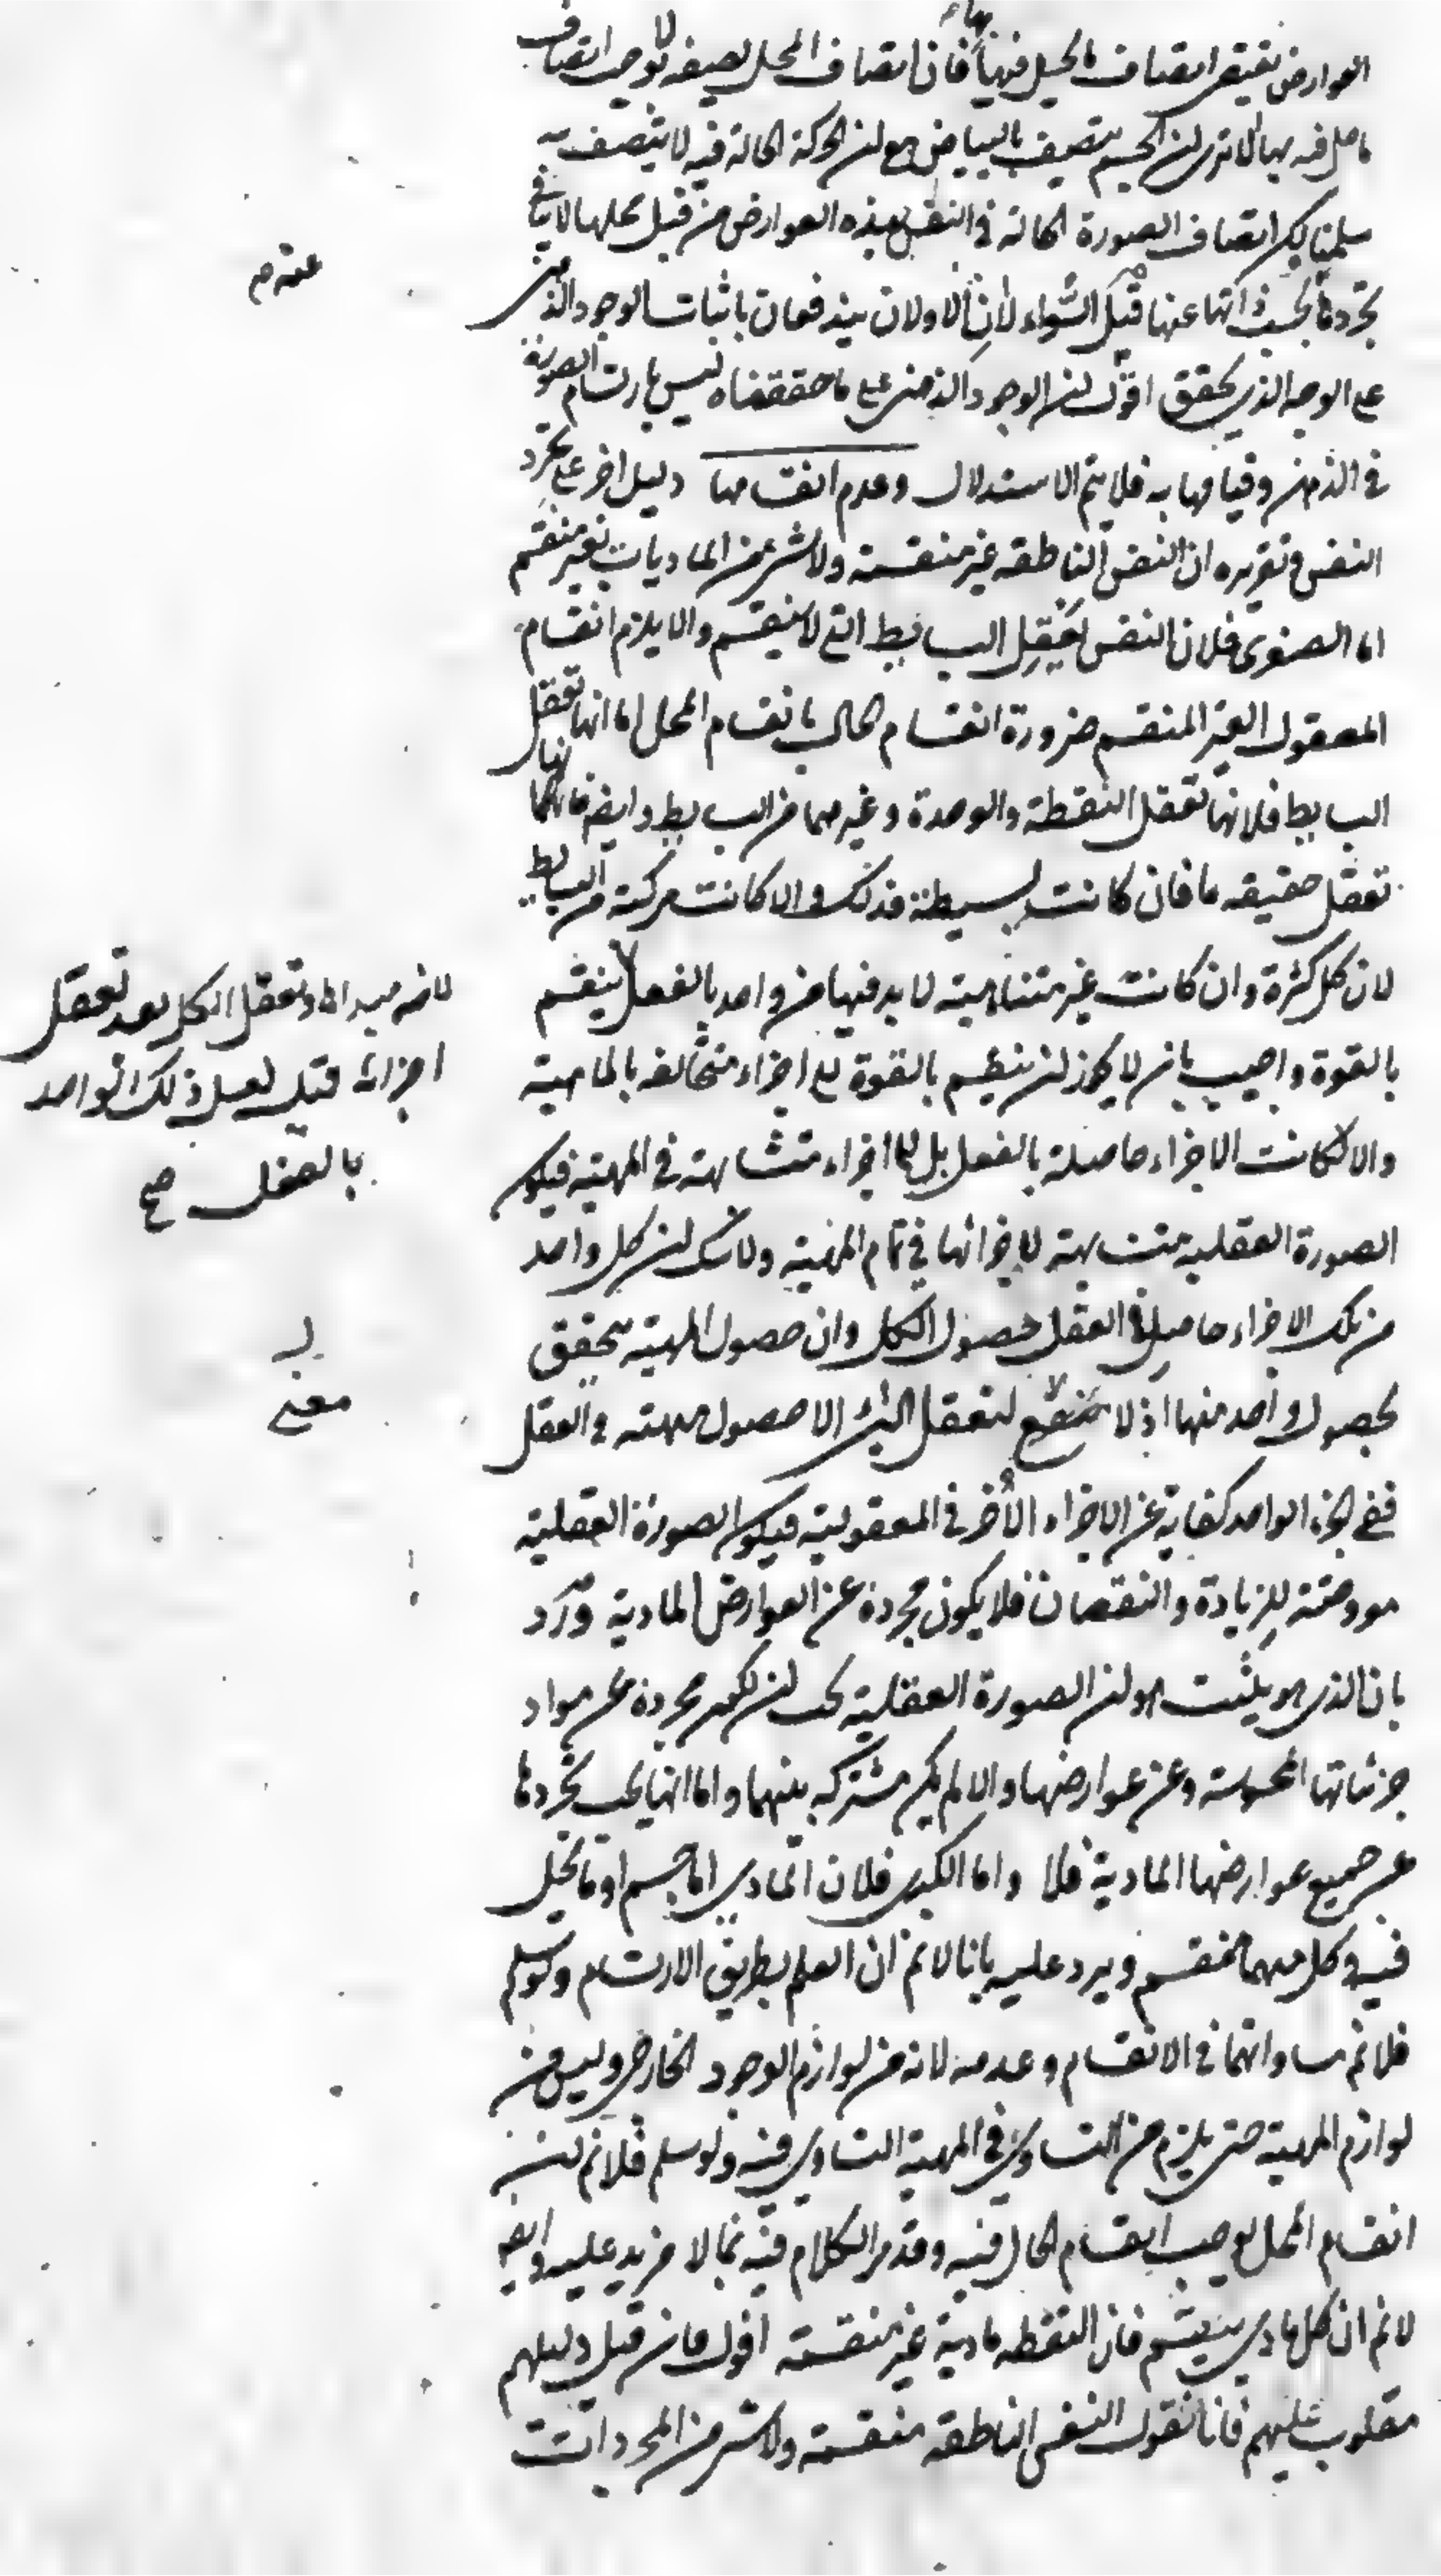 العوارض يقتضي اتصاف ما يحل فيها بها فان اتصاف المحل بصفة لا يوجب اتصاف
ما حل فيه بها الا ترى ان الجسم يتصف بالبياض مع ان الحركة الحالة فيه لا يتصف به
سلمنا لكن اتصاف الصورة الحالة في النفس بهذه العوارض من قبل محلها لا ينافي
تجردها بحسب ذاتها عنها قيل الشواء لان الاولان يندفعان باثبات الوجود الذهني
على الوجه الذي يحقق اقول ان الوجود الذهني على ما حققناه ليس بارتسام الصورة
في الذهن وقيامها به فلا يتم الاستدلال وعدم انقسامها دليل اخر على تجرد
النفس وتقريره ان النفس الناطقة غير منقسمة ولا شئ من الماديات بغير منقسم
اما الصغرى فلان النفس تعقل البسايط التي لا ينقسم والا يلزم انقسام
المعقول الغير المنقسم ضرورة انقسام الحال بانقسام المحل اما انها تعقل
البسايط فلانها تعقل النقطة والوحدة وغيرهما من البسايط وايضا فانها
تعقل حقيقة ما فان كانت بسيطة فذلك والا كانت مركبة من البسايط
لان كل كثرة وان كانت غير متناهية لا بد فيها من واحد بالفعل لا ينقسم
بالقوة واجيب بان لا يجوز ان ينقسم بالقوة الى اجزاء متخالفة بالماهية
والا لكانت الاجزاء حاصلة بالفعل بل الى اجزاء متشابهة في المهية فيكون
الصورة العقلية متشابهة لاجزائها في تمام المهية ولا شك ان كل واحد
من تلك الاجزاء حاصل في العقل بحصول الكل وان حصول المهية يتحقق
بحصول واحد منها اذ لا معنى لتعقل الشئ الا حصول مهيته في العقل
ففي الجزء الواحد كفاية عن الاجزاء الاخر في المعقولية فيكون الصورة العقلية
معروضة للزيادة والنقصان فلا يكون مجردة عن العوارض المادية ورد
بان الذي هو يثبت هو ان الصورة العقلية يجب ان يكون مجردة عن مواد
جزئياتها المحسوسة وعن عوارضها والا لم يكن مشتركة بينهما واما انها يجب تجردها
عن جميع عوارضها المادية فلا واما الكبرى فلان المادي اما جسم او ما يحل
فيه وكل منهما منقسم ويرد عليه بانا لا نم ان العلم بطريق الارتسام ولو سلم
فلا نم مساواتها في الانقسام وعدمه لانه من لوازم الوجود الخارجي وليس من
لوازم المهية حتى يلزم من التساوي في المهية التساوي فيه ولو سلم فلا نم ان
انقسام المحل يوجب انقسام الحال فيه وقد مر الكلام فيه بما لا مزيد عليه وايضا
لا نم ان كل مادي ينقسم فان النقطة مادية غير منقسمة اقول فان قيل دليلهم
مقلوب عليهم فانا نقول النفس الناطقة منقسمة ولا شئ من المجردات
لانه مبدءها وتعقل الكل بعد تعقل
اجزائه قيل لعل ذلك الواحد
بالفعل صح
معنى